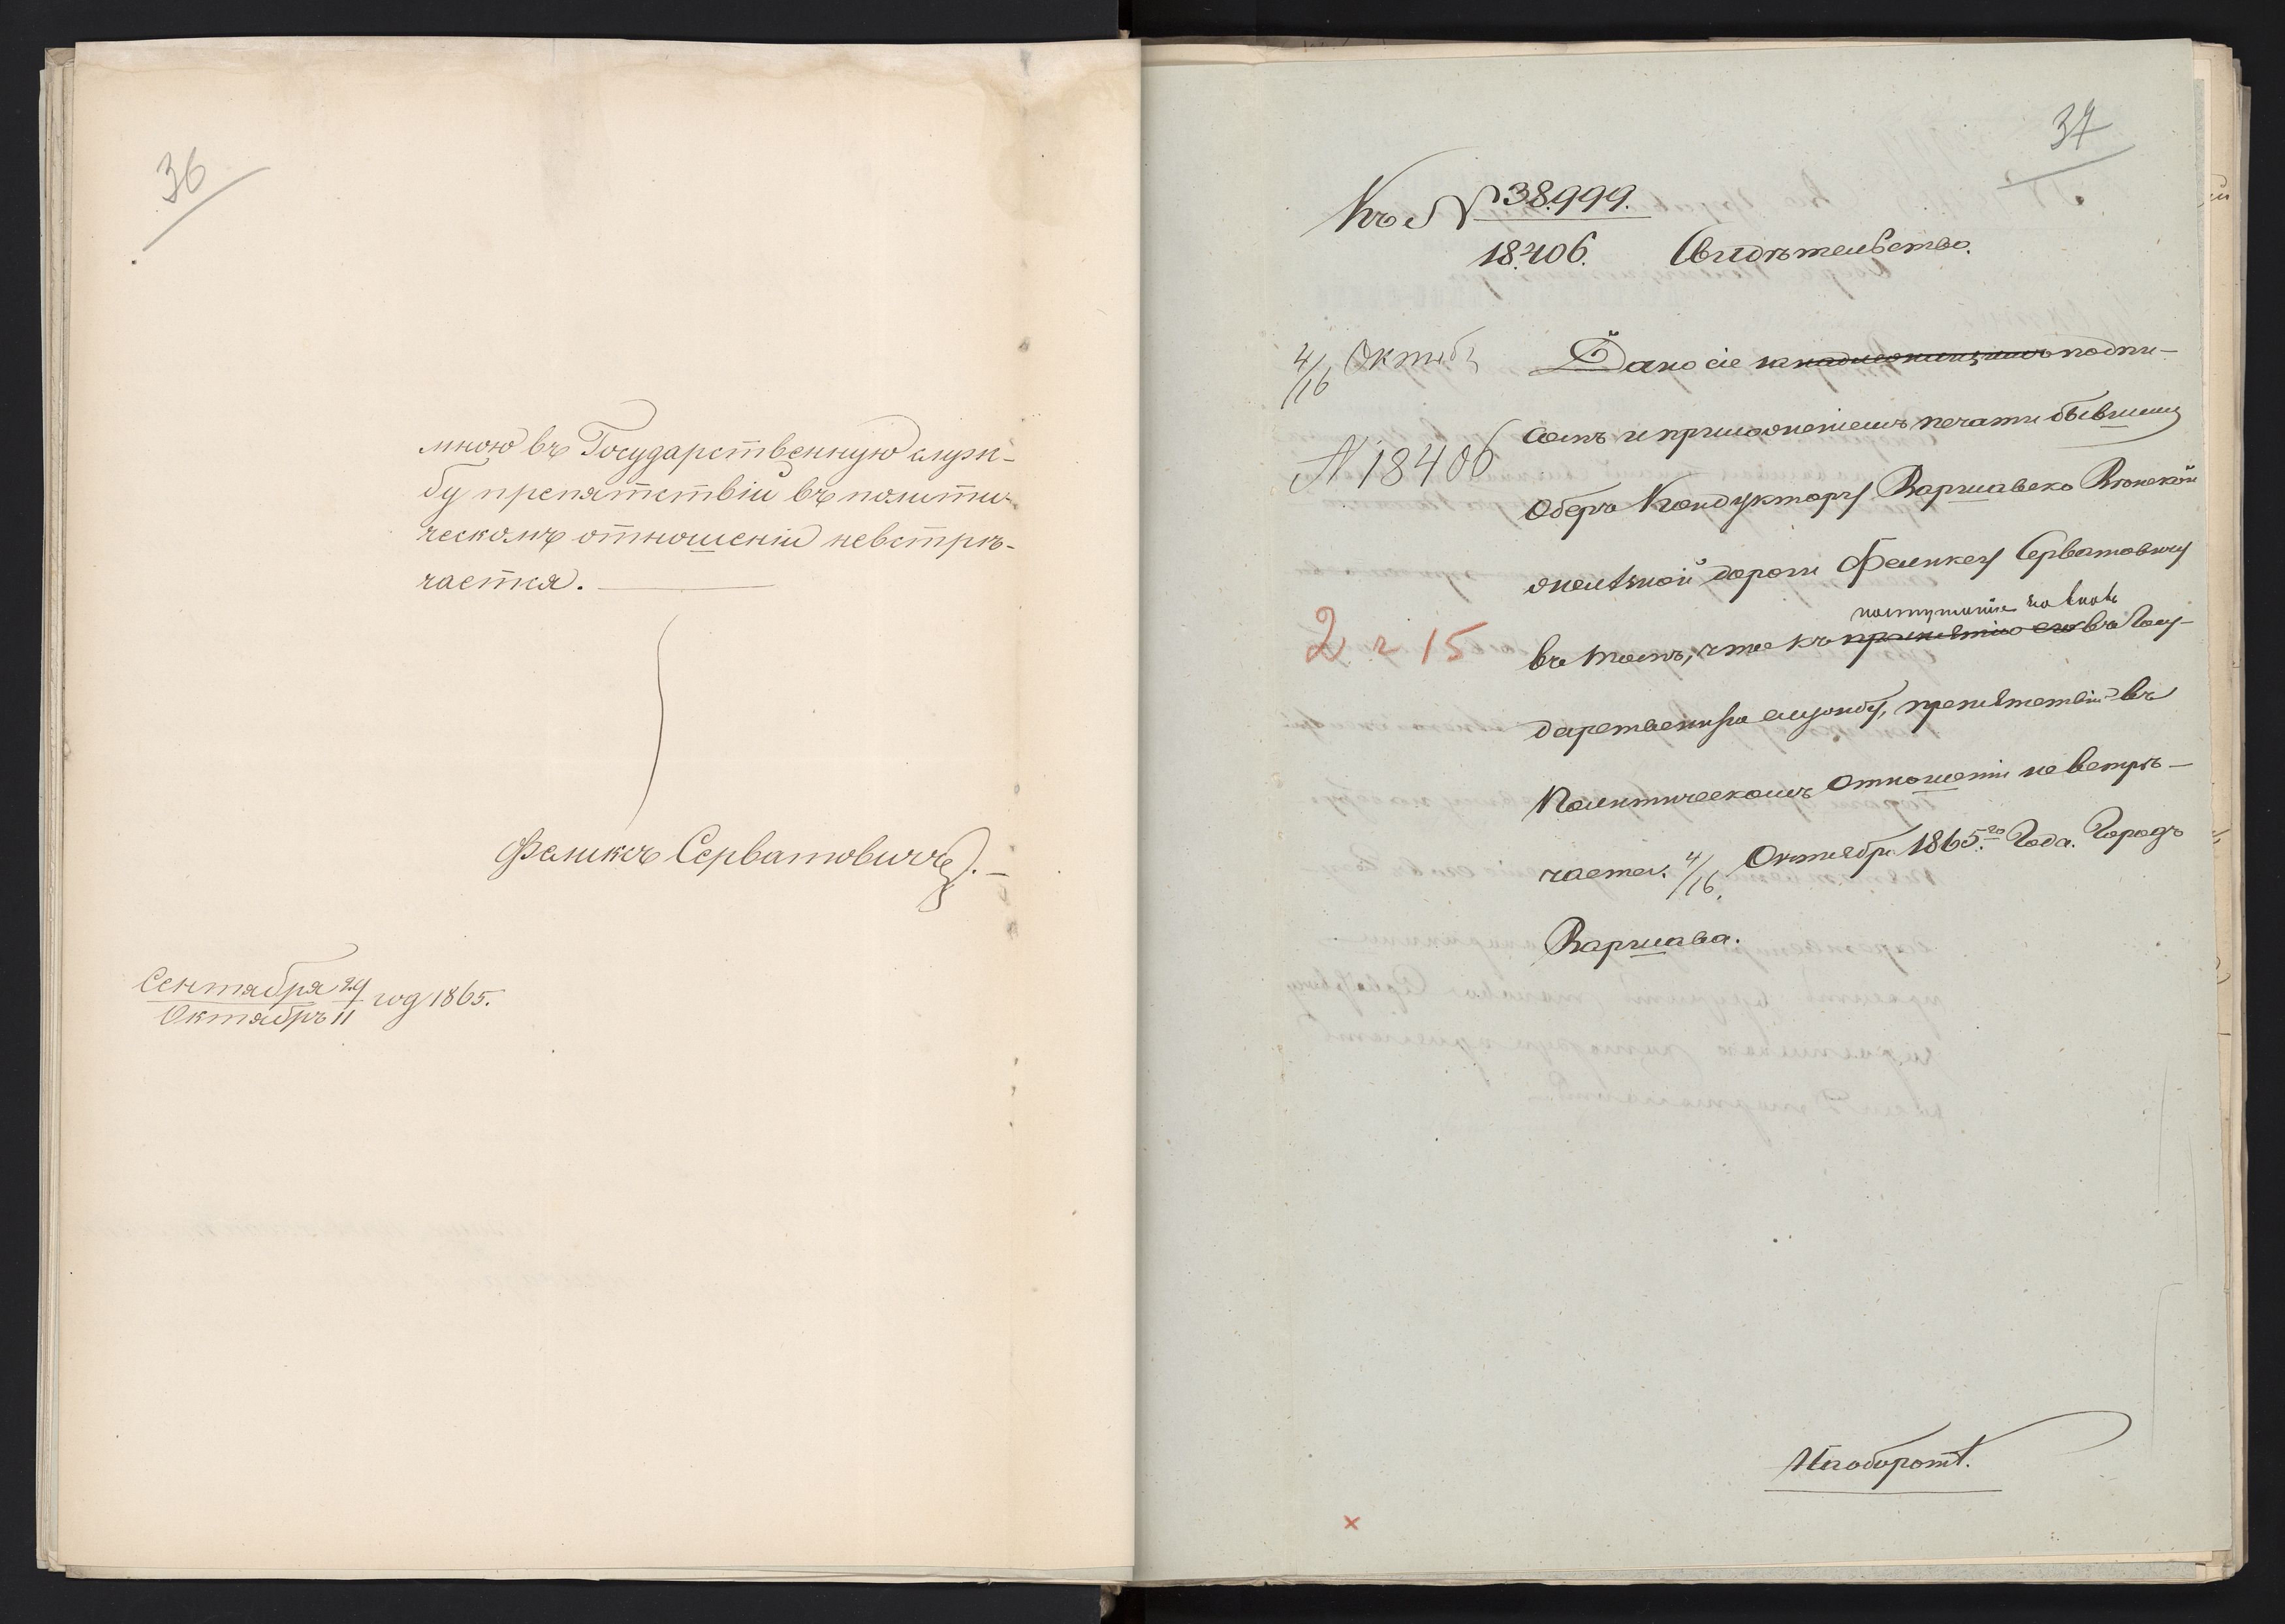 36
мною въ Государственную служ-
бу препятствій въ полити-
ческомъ отношеніи невстрѣ-
чается.
Феликсъ Серватовичъ.
Сентября 29
Октябръ 11 год 1865.
37
Къ № 38.999.
18.406. Свидѣтельство.
4/16 Октяб
Дано сіе за надлежащимъ подпи-
сомъ и приложеніемъ печати бывшему
№ 18406
Оберъ Кондуктору Варшавско Вѣнской
желѣзной дороги Феликсу Серватовичу
поступленію его вновь
2 г 15
въ томъ, что къ принятію его въ Госу-
дарственную службу, препятствій въ
Политическомъ отношеніи не встрѣ-
чается. 4/16 Октября 1865го Года. Городъ
Варшава.
Наоборотѣ.